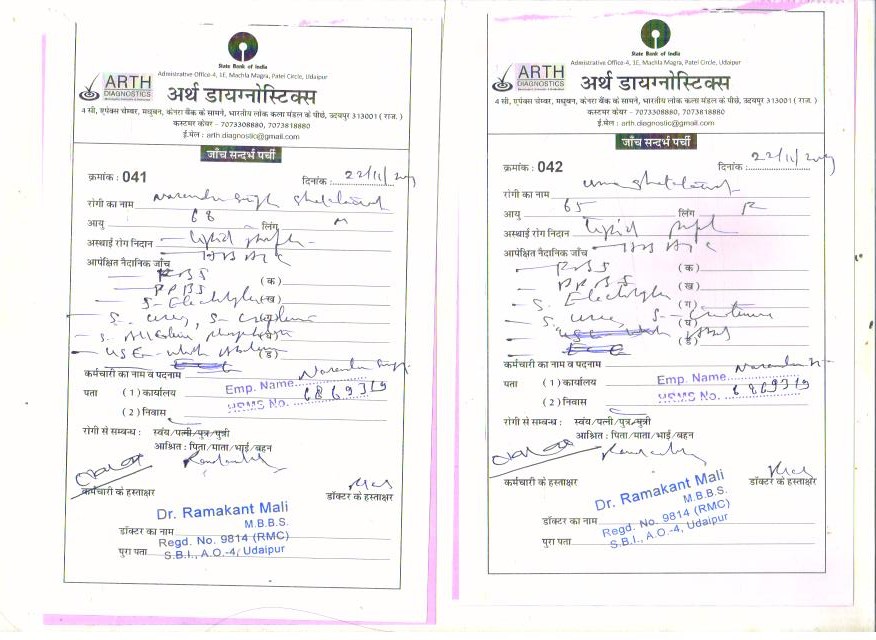 State Bank of India
Admistrative Office-4, 1E, Machla Magra, Patel Circle, Udaipur
ARTH
DIAGNOSTICS
अर्थ डायग्नोस्टिक्स
4 सी, एपेक्स चेम्बर, मधुबन, केनरा बैंक के सामने, भारतीय लोक कला मंडल के पीछे, उदयपुर 313001 ( राज. )
कस्टमर केयर - 7073308880, 7073818880
ई.मेल : arth.diagnostic@gmail.com
जाँच सन्दर्भ पर्ची
क्रमांक : 041 दिनांक : 22/11/
रोगी का नाम Narendra Singh
आयु 68 लिंग M
अस्थाई रोग निदान Lipid
आपेक्षित नैदानिक जाँच
RBS (क)
PPBS (ख)
S. Electrolyte
S. urea, S-
S.
(ड)
कर्मचारी का नाम व पदनाम Narendra
पता ( 1 ) कार्यालय Emp. Name
( 2 ) निवास HRMS No. 6869319
रोगी से सम्बन्ध : स्वंय/पत्नी/पुत्र/पुत्री
आश्रित : पिता/माता/भाई/बहन
कर्मचारी के हस्ताक्षर डॉक्टर के हस्ताक्षर
Dr. Ramakant Mali
M.B.B.S.
डॉक्टर का नाम Regd. No. 9814 (RMC)
पुरा पता S.B.I., A.O.-4, Udaipur
State Bank of India
Admistrative Office-4, 1E, Machla Magra, Patel Circle, Udaipur
ARTH
DIAGNOSTICS
अर्थ डायग्नोस्टिक्स
4 सी, एपेक्स चेम्बर, मधुबन, केनरा बैंक के सामने, भारतीय लोक कला मंडल के पीछे, उदयपुर 313001 ( राज. )
कस्टमर केयर - 7073308880, 7073818880
ई.मेल : arth.diagnostic@gmail.com
जाँच सन्दर्भ पर्ची
क्रमांक : 042 दिनांक : 22/11/
रोगी का नाम uma
आयु 65 लिंग F
अस्थाई रोग निदान Lipid
आपेक्षित नैदानिक जाँच
RBS (क)
PPBS (ख)
S. Electrolyte (ग)
S. urea, S-
(ड)
कर्मचारी का नाम व पदनाम Narendra
पता ( 1 ) कार्यालय Emp. Name
( 2 ) निवास HRMS No. 6869319
रोगी से सम्बन्ध : स्वंय/पत्नी/पुत्र/पुत्री
आश्रित : पिता/माता/भाई/बहन
कर्मचारी के हस्ताक्षर डॉक्टर के हस्ताक्षर
Dr. Ramakant Mali
M.B.B.S.
डॉक्टर का नाम Regd. No. 9814 (RMC)
पुरा पता S.B.I., A.O.-4, Udaipur